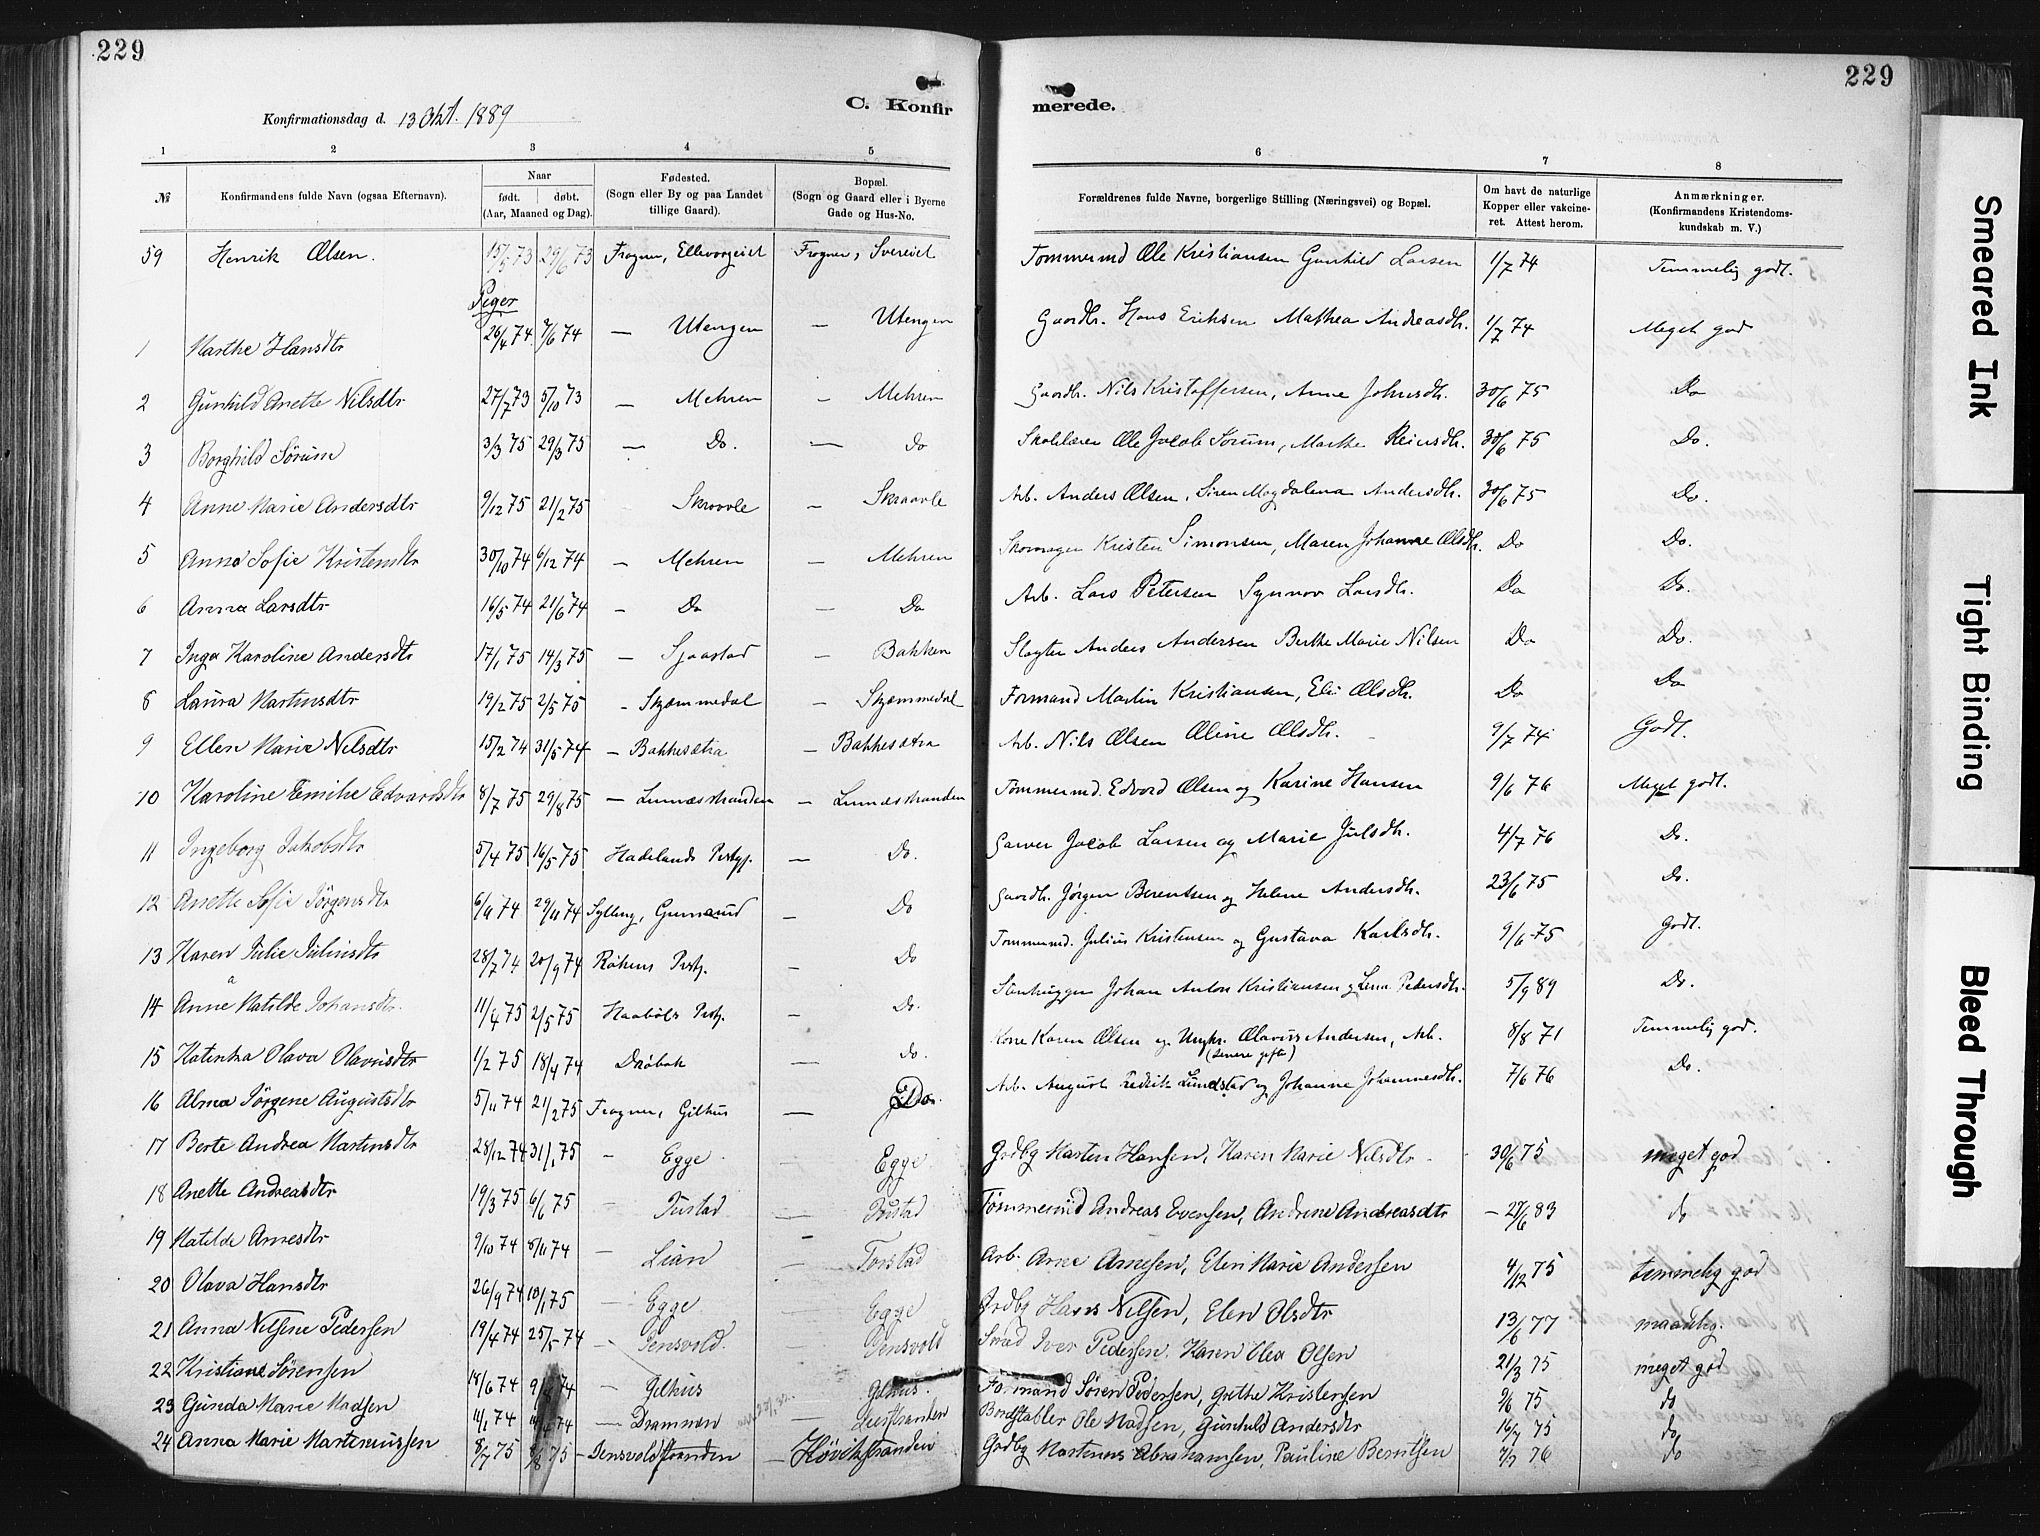 229
229
C. Konfir
merede.
Konfirmationsdag d. 13 Okt. 1889
1 2 3 4 5 6 7 8
№ Konfirmandens fulde Navn (ogsaa Efternavn). Naar født. døbt. (Aar, Maaned og Dag). Fødested. (Sogn eller By og paa Landet tillige Gaard). Bopæl. (Sogn og Gaard eller i Byerne Gade og Hus-No. Forældrenes fulde Navne, borgerlige Stilling (Næringsvei) og Bopæl. Om havt de naturlige Kopper eller vakcineret. Attest herom. Anmærkninger. (Konfirmandens Kristendomskundskab m. V.)
59 Henrik Olsen. 15/5 73 29/6 73 Frogner, Frogner, Tømmermd Ole Kristiansen Gunhild Larsen 1/7 74 Temmelig godt.
Piger
1 Marthe Hansdtr 26/4 74 7/6 74 — Utengen — Utengen Gaardbr. Hans Eriksen Mathea Andreasdtr. 1/7 74 Meget god
2 Gunhild Anette Nilsdtr 27/7 73 5/10 73 — Mehren — Mehren Gaardbr. Nils Kristoffersen, Anne Johnsdtr. 30/6 75 Do
3 Borghild Sørum 3/3 75 29/3 75 — Do. — do Skolelærer Ole Jacob Sørum, Marthe Reiersdtr. 30/6 75 Do.
4 Anne Marie Andersdtr 9/12 75 21/2 75 Skraavle — Skraavle Arb. Anders Olsen, Siren Magdalena Andersdtr. 30/6 75 Do.
5 Anna Sofie Kristensdtr 30/10 74 6/12 74 — Mehren — Mehren Skomager Kristen Simonsen, Maren Johanne Olsdtr. Do Do.
6 Anna Larsdtr 16/5 74 21/6 74 — Do — Do Arb. Lars Petersen Synnøv Larsdtr. Do Do.
7 Inga Karoline Andersdtr 17/1 75 14/3 75 — Sjaastad — Bakken Slagter Anders Andersen Berthe Marie Nilsen Do Do.
8 Laura Martinsdtr 19/2 75 2/5 75 — Skjæmmedal — Skjæmmedal Formand Martin Kristiansen, Eli Olsdtr. Do Do
9 Ellen Marie Nilsdtr 15/2 74 31/5 74 — Bakkesætra — Bakkesætra Arb. Nils Olsen Oline Olsdtr. 9/7 74 Godt.
10 Karoline Emilie Edvardsdtr 8/7 75 29/8 75 — Linnæsstranden — Linnæsstranden Tømmermd. Edvard Olsen og Karine Hansen 9/6 76 Meget godt.
11 Ingeborg Jakobsdtr 5/4 75 16/5 75 Hadelands Prstgj. — Do. Garver Jacob Larsen og Marie Julsdtr. 4/7 76 Do.
12 Anette Sofie Jørgensdtr 6/9 74 29/11 74 Sylling, — Do Gaardbr. Jørgen Berentsen og Helene Andersdtr. 23/6 75 Do.
13 Karen Julie Juliusdtr 28/7 74 20/9 74 Røkens Prstgj. — Do Tømmermd. Julius Kristensen og Gustava Karlsdtr. 9/6 75 Godt.
14 Anna Matilde Johansdtr. 11/4 75 2/5 75 Haabøls Prstgj. — Do. Stenhugger Johan Anton Kristiansen og Lena Petersdtr. 5/9 89 Do.
15 Katinka Olava Olavusdtr 1/2 75 18/4 74 Drøbak do. Kone Karen Olsen og Ungkr. Olavus Andersen, Arb. (senere gifte) 8/8 71 Temmelig god.
16 Alma Jørgene Augustsdtr 5/11 74 21/2 75 Frogner, Gilhus — Do. Arb. August Fredrik Lundstad og Johanne Johannesdtr. 7/6 76 Do.
17 Berte Andrea Martensdtr 28/12 74 31/1 75 — Egge — Egge Grdbg Marten Hansen, Karen Marie Nilsdtr 30/6 75 meget god
18 Anette Andreasdtr 19/3 75 6/6 75 — Tustad — Tustad Tømmermd Andreas Evensen, Andrine Andreasdtr — 27/6 83 do
19 Matilde Arnesdtr 9/10 74 8/11 74 — Lian — Torstad Arb. Arne Arnesen, Elen Marie Andersen 4/12 75 temmelig god
20 Olava Hansdtr 26/9 74 10/1 75 — Egge — Egge Grdbg Hans Nilsen, Elen Olsdtr 13/6 77 maadelig.
21 Anna Nilsine Pedersen 19/4 74 25/5 74 — Densvold. — Densvold Smed Iver Pedersen. Karen Olea Olsen 21/3 75 meget god
22 Kristiane Sørensen 18/6 74 — Gilhus — Gilhus. Formand Søren Pedersen, Grethe Kristensen 9/6 75 do
23 Gunda Marie Madsen 11/1 74 — Drammen Bordstabler Ole Madsen, Gunhild Andersdtr 16/7 75 do
24 Anna Marie Martinussen 8/7 75 — Densvoldstranden — Høvikstranden Grdbg Martinus Abrahamsen, Pauline Berntsen 7/7 76 do
Smeared Ink
Tight Binding
Bleed Through